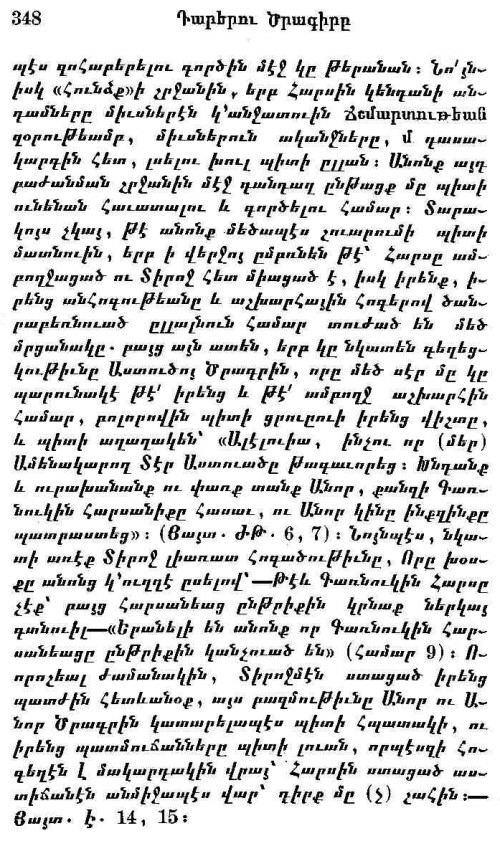 348 Դարերու Ծրագիրը
պէս զոհաբերելու գործին մէջ կը թերանան։ Նո՛յն-
իսկ «Հունձք»ի շրջանին, երբ Հարսին կենդանի ան-
դամները միւսներէն կ՚անջատուին Ճշմարտութեան
զօրութեամբ, միւսներուն ականջները, մ դասա-
կարգին հետ, լսելու խուլ պիտի ըլլան։ Անոնք այդ
բաժանման շրջանին մէջ դանդաղ ընթացք մը պիտի
ունենան հաւատալու և գործելու համար։ Տարա-
կոյս չկայ, թէ անոնք մեծապէս շուարումի պիտի
մատնուին, երբ ի վերջոյ ըմբռնեն թէ՝ Հարսը ամ-
բողջացած ու Տիրոջ հետ միացած է, իսկ իրենք, ի-
րենց անհոգութեանը և աշխարհային հոգերով ծան-
րաբեռնուած ըլլալնուն համար տուժած են մեծ
մրցանակը. բայց այն ատեն, երբ կը նկատեն գեղեց-
կութիւնը Աստուծոյ Ծրագրին, որը մեծ սէր մը կը
պարունակէ թէ՛ իրենց և թէ՛ ամբողջ աշխարհին
համար, բոլորովին պիտի ցրուըուի իրենց վիշտը,
և պիտի աղաղակեն՝ «Ալէլուիա, ինչու որ (մեր)
Ամենակարող Տէր Աստուածը թագաւորեց։ Խնդանք
և ուրախանանք ու փառք տանք Անոր, քանզի Գառ-
նուկին Հարսանիքը հասաւ, ու Անոր կինը ինքզինքը
պատրաստեց»։ (Յայտ. ԺԹ. 6, 7)։ Նոյնպէս, նկա-
տի առէք Տիրոջ լիառատ հոգածութիւնը, Որը խօս-
քը անոնց կ՚ուղղէ ըսելով՝—թէև Գառնուկին Հարսը
չէք՝ բայց Հարսանեաց ընթրիքին կրնաք ներկայ
գտնուիլ—«Երանելի են անոնք որ Գառնուկին Հար-
սանեացը ընթրիքին կանչուած են» (համար 9)։ Ո-
րոշեալ ժամանակին, Տիրոջմէն ստացած իրենց
պատժին հետևանօք, այս բազմութիւնը Անոր ու Ա-
նոր Ծրագրին կատարելապէս պիտի հպատակի, ու
իրենց պատմուճանները պիտի լուան, որպէսզի հո-
գեղէն լ մակարդակին վրայ՝ Հարսին ստացած աս-
տիճանէն անմիջապէս վար՝ դիրք մը (չ) շահին։—
Յայտ. է. 14, 15։